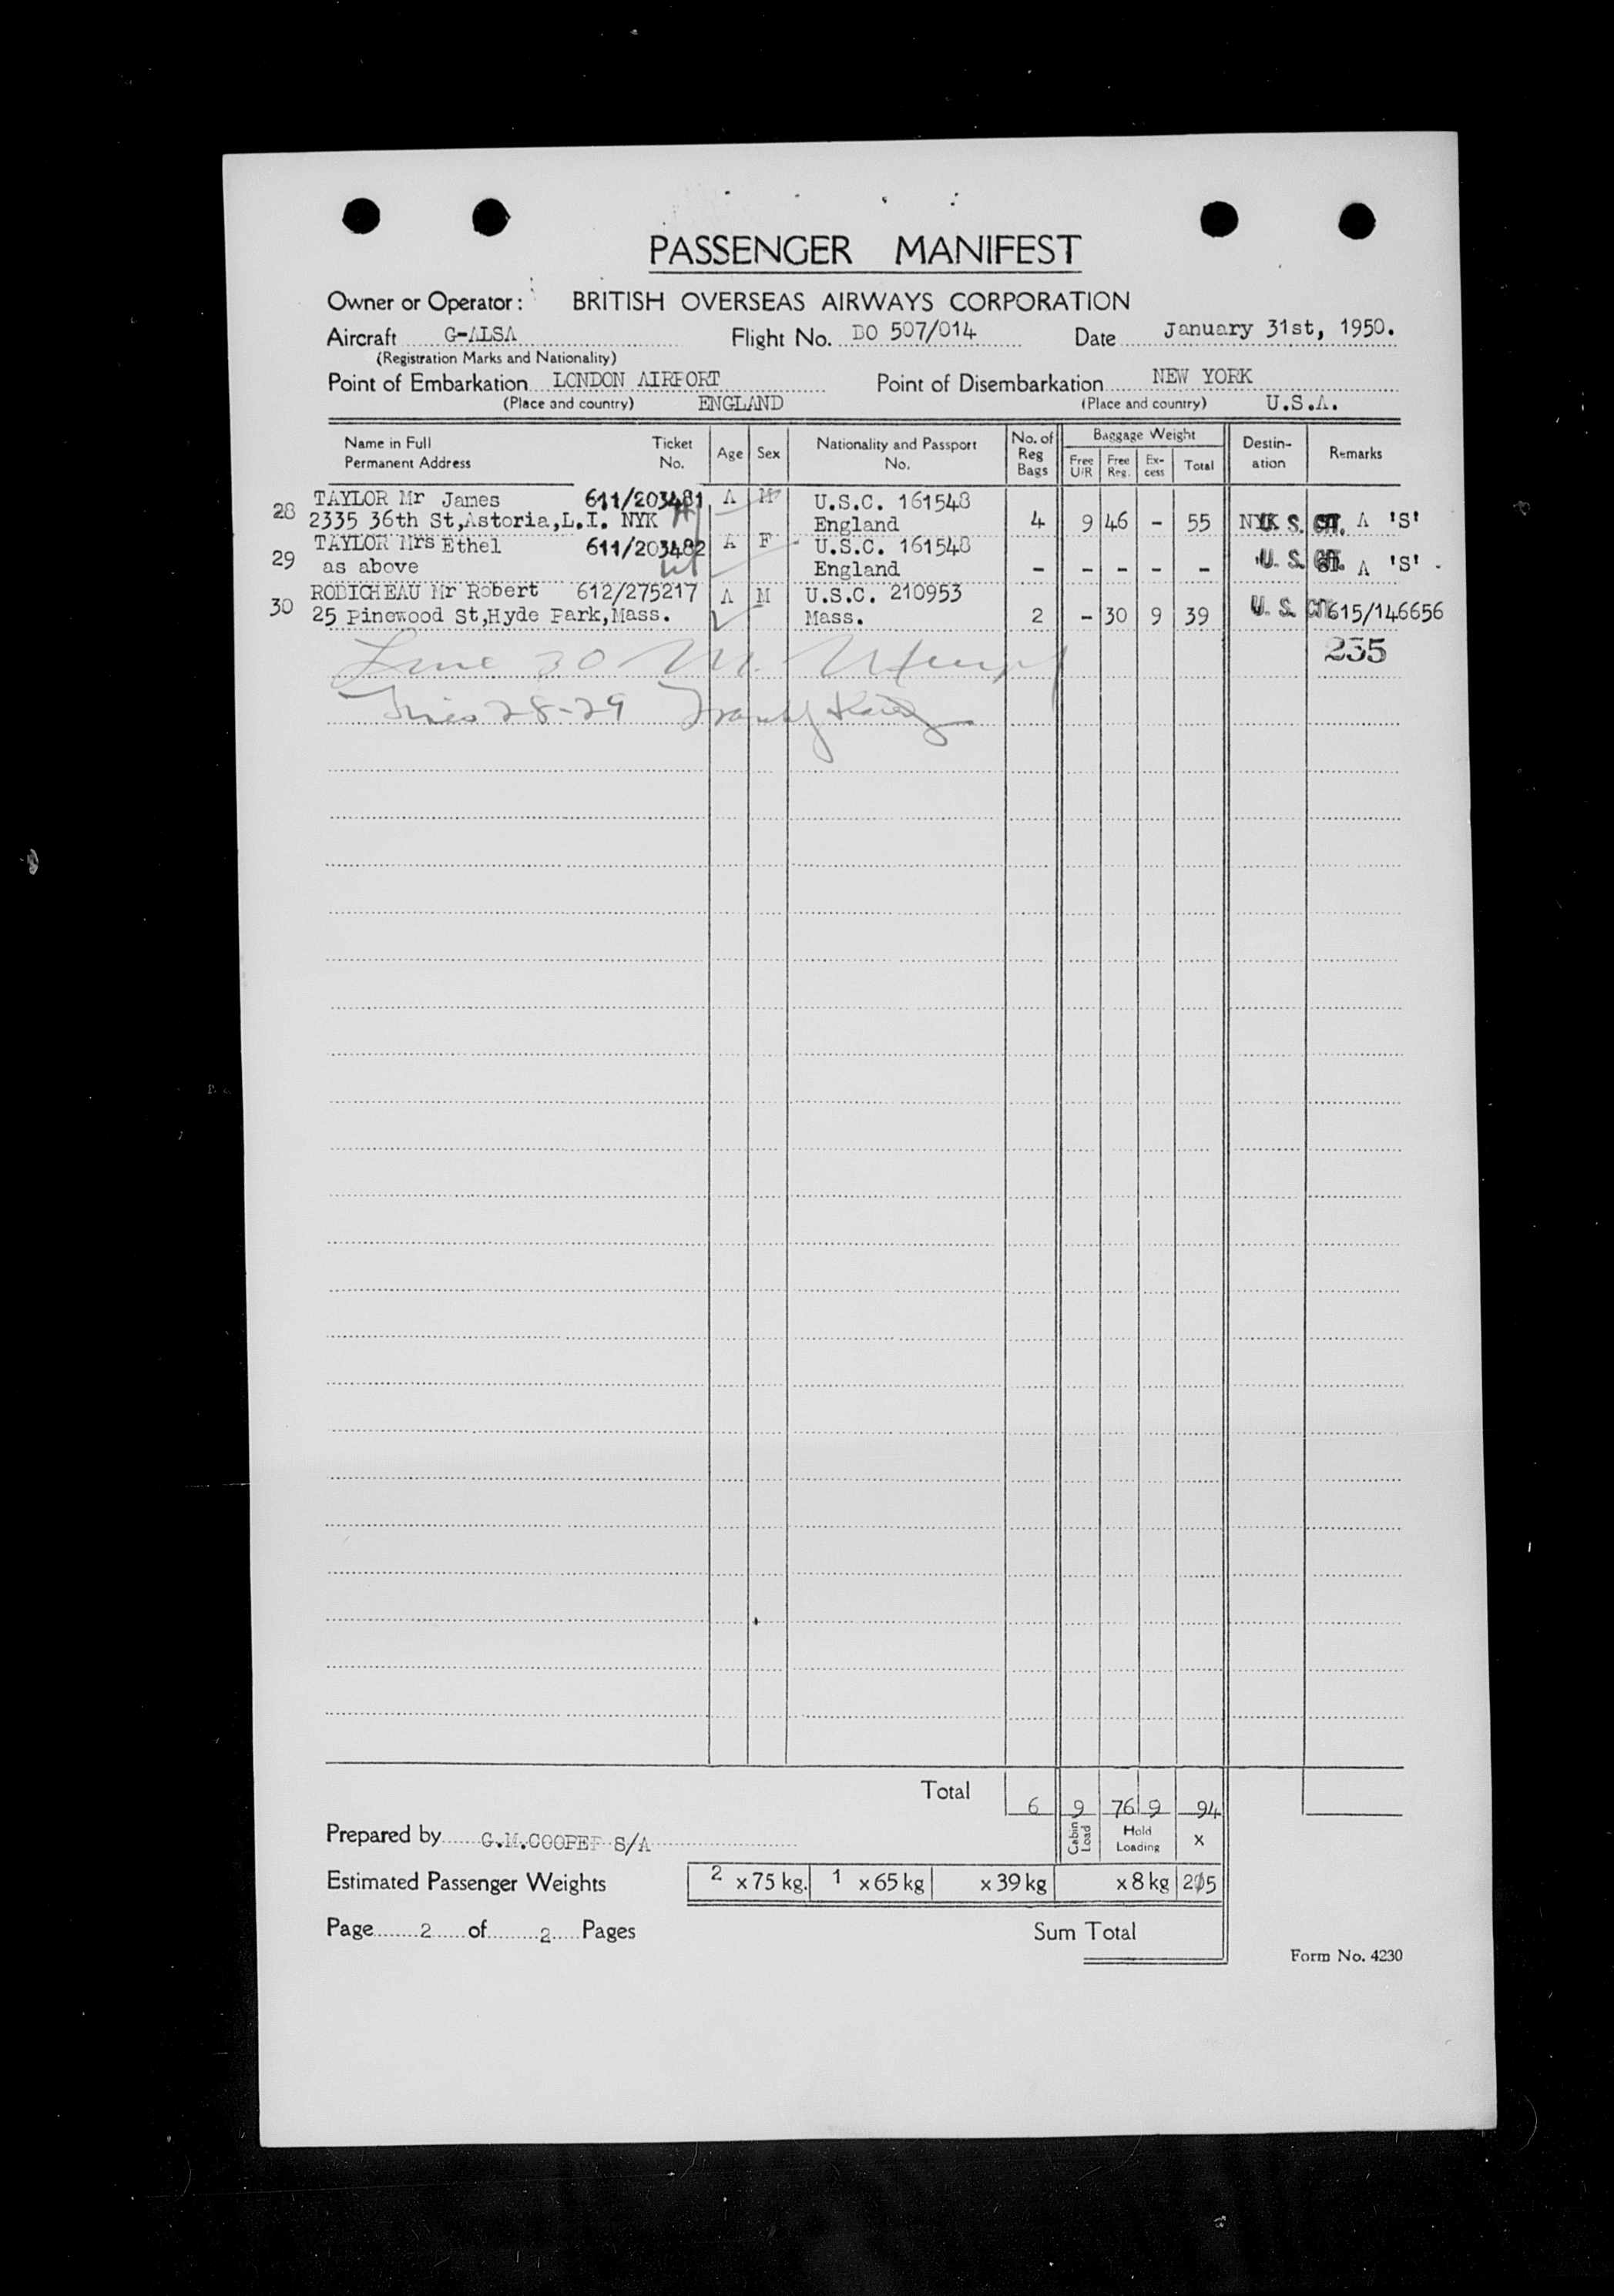 PASSENGER MANIFEST
Owner or Operator: BRITISH OVERSEAS AIRWAYS CORPORATION
Aircraft G-ALSA Flight No. BO 507/014 Date January 31st, 1950.
(Registration Marks and Nationality)
Point of Embarkation LONDON AIRPORT Point of Disembarkation NEW YORK
(Place and country) ENGLAND (Place and country) U.S.A.
Name in Full Permanent Address Ticket No. Age Sex Nationality and Passport No. No. of Reg Bags Baggage Weight Free U/R Free Reg. Ex-cess Total Destin-ation Remarks
28 TAYLOR Mr James 611/203481 A M U.S.C. 161548
2335 36th St,Astoria,L.I. NYK England 4 9 46 - 55 NYK U. S. CIT. A 'S'
29 TAYLOR Mrs Ethel 611/203482 A F U.S.C. 161548
as above England - - - - - U. S. CIT. A 'S'
30 RODICHEAU Mr Robert 612/275217 A M U.S.C. 210953
25 Pinewood St,Hyde Park,Mass. Mass. 2 - 30 9 39 U. S. CIT 615/146656
Line 30 M. 235
Lines 28-29
Total 6 9 76 9 94
Prepared by G.M.COOPER S/A Cabin Load Hold Loading x
Estimated Passenger Weights 2 x 75 kg. 1 x 65 kg x 39 kg x 8 kg 215
Page 2 of 2 Pages Sum Total
Form No. 4230